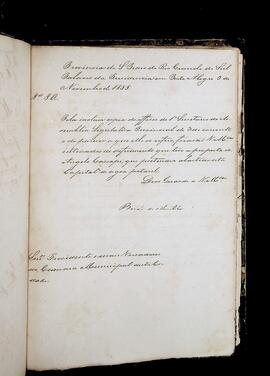 Provincia de S. Pedro do Rio Grande do Sul
Palacio da Presidencia em Porto Alegre 5 de
Novembro de 1858
Nº 80.
Pela inclusa copia do officio do 1º Secretario da As
semblea Legislativa Provincial de 3 do corrente
e do parecer a que elle se refere, ficarão V. Mces
inteirados do deferimento que teve a proposta de
Angelo Cassapi, que pretendia abastecer esta
Capital de agoa potavel.
Deos Guarde a V. Mces
Snres Presidente e mais Vereadores
da Camara Municipal desta Ci
dade.